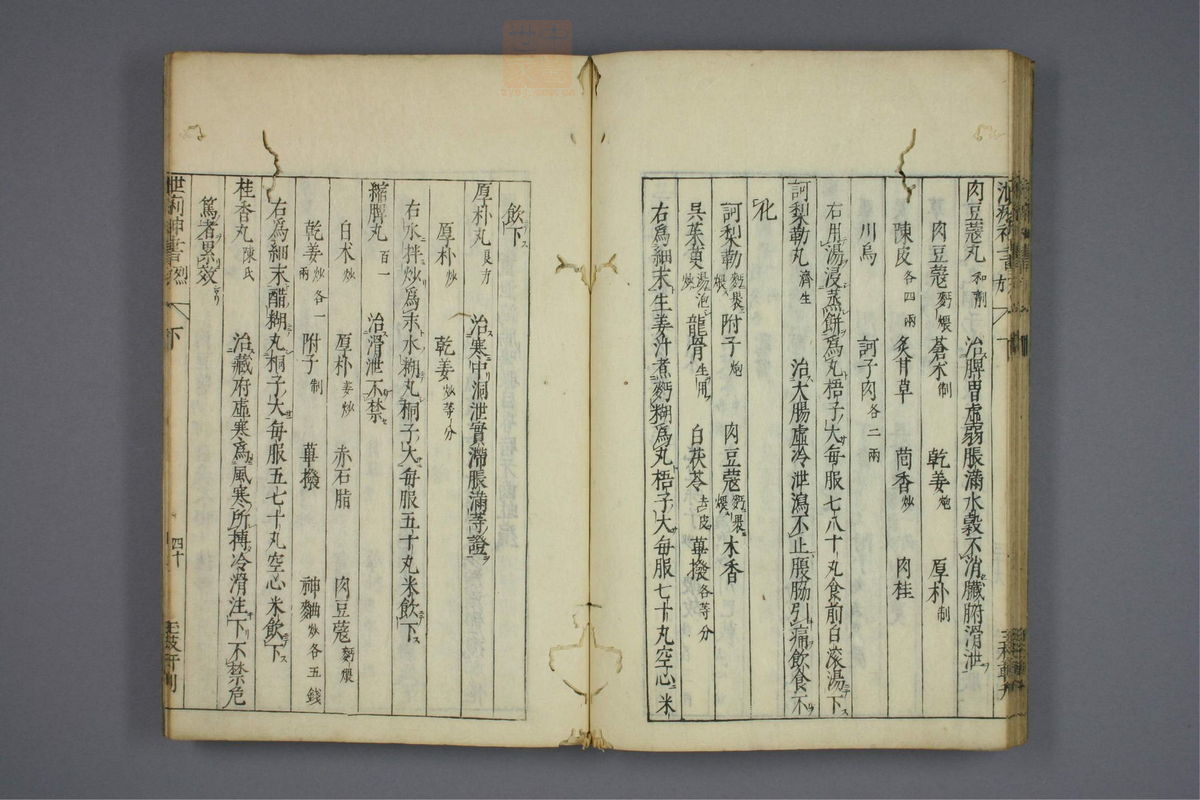 肉豆蔻丸 和劑 治脾胃虛弱脹滿水穀不消臟腑滑泄
肉豆蔻 麪煨 蒼朮 制 乾姜 炮 厚朴 制
陳皮 各四兩 炙甘草 茴香 炒 肉桂
川烏 訶子肉 各二兩
右用湯浸蒸餅爲丸梧子大每服七八十丸食前白滚湯下
訶梨勒丸 濟生 治大腸虛冷泄瀉不止脹脇引痛飲食不
化
訶梨勒 麪裹煨 附子 炮 肉豆蔻 麪裹煨 木香
吳茱萸 湯泡炒 龍骨 生用 白茯苓 去皮 蓽撥 各等分
右爲細末生姜汁煮麪糊爲丸梧子大每服七十丸空心米
飲下
厚朴丸 良方 治寒中洞泄實滯脹滿等證
厚朴 炒 乾姜 炒等分
右水拌炒爲末水糊丸桐子大每服五十丸米飲下
縮脾丸 百一 治滑泄不禁
白朮 炒 厚朴 姜炒 赤石脂 肉豆蔻 麪煨
乾姜 炒各一兩 附子 制 蓽撥 神麯 炒各五錢
右爲細末醋糊丸桐子大每服五七十丸空心米飲下
桂香丸 陳氏 治藏府虛寒爲風寒所搏冷滑注下不禁危
篤者累效
下
四十